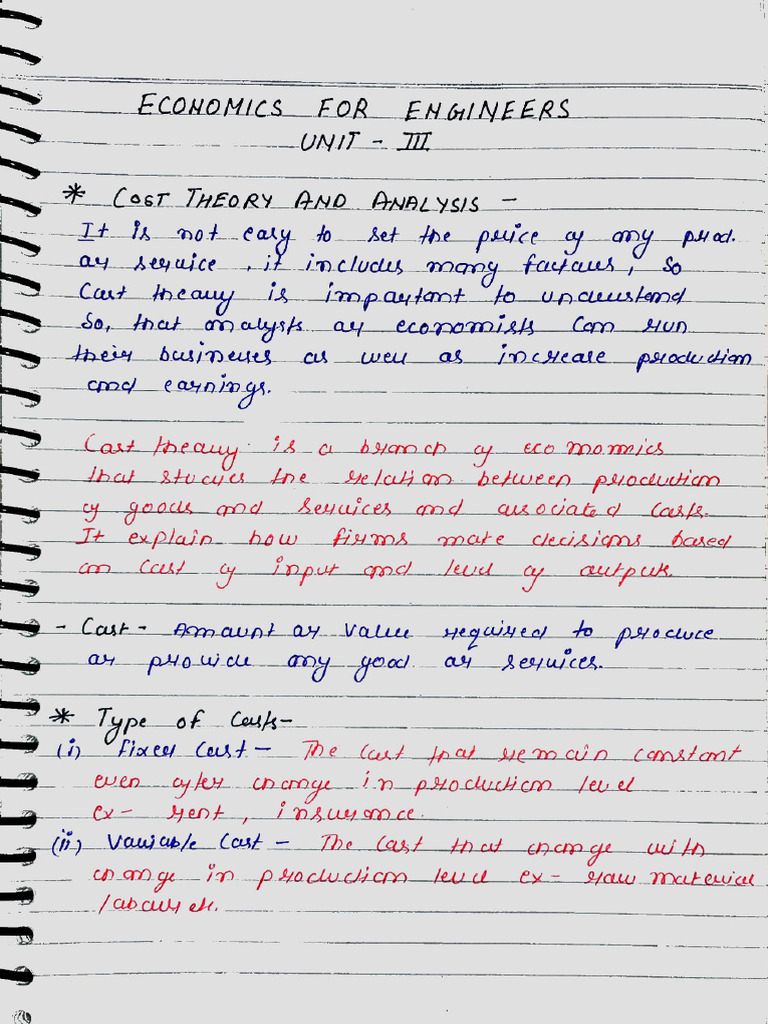 ECONOMICS FOR ENGINEERS
UNIT - III
* COST THEORY AND ANALYSIS -
It is not easy to set the price of any prod.
or service, it includes many factors, so
Cost theory is important to understand
So, that analysts or economists can run
their busineses as well as increase production
and earnings.
Cost theory is a branch of economics
that studies the relation between production
of goods and services and associated Costs.
It explain how firms make decisions based
on Cost of input and level of output.
- Cost - Amount or value required to produce
or provide any good or services.
* Type of Costs-
(i) Fixed Cost - The Cost that remain constant
even after change in production level
ex- rent, insurance.
(ii) Variable Cost - The Cost that change with
change in production level ex- raw material
labour etc.